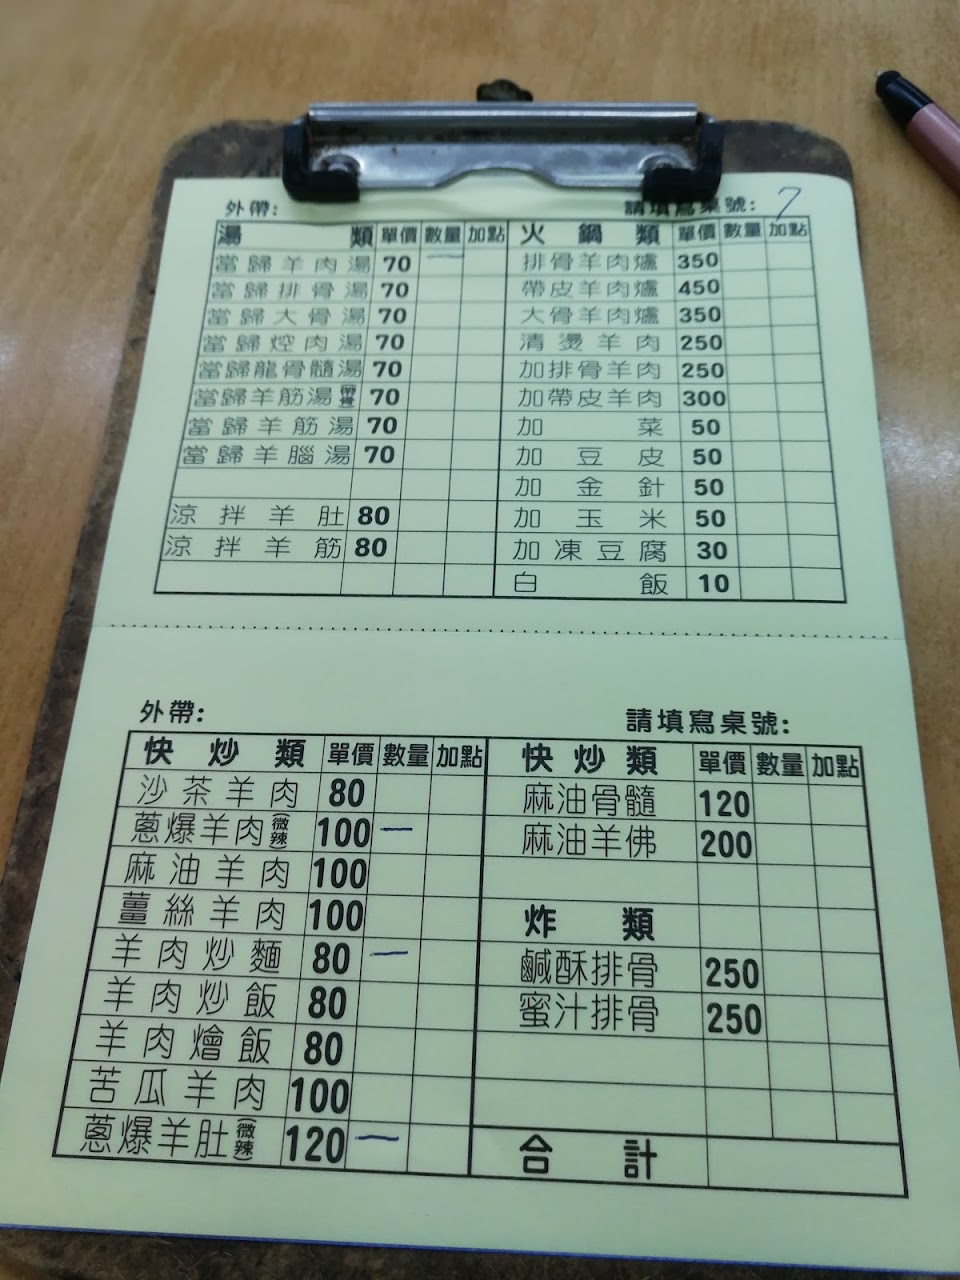 外帶: 請填寫桌號: 7
湯類 單價 數量 加點 火鍋類 單價 數量 加點
當歸羊肉湯 70 一 排骨羊肉爐 350
當歸排骨湯 70 帶皮羊肉爐 450
當歸大骨湯 70 大骨羊肉爐 350
當歸焢肉湯 70 清燙羊肉 250
當歸龍骨髓湯 70 加排骨羊肉 250
當歸羊筋湯(帶骨) 70 加帶皮羊肉 300
當歸羊筋湯 70 加菜 50
當歸羊腦湯 70 加豆皮 50
加金針 50
涼拌羊肚 80 加玉米 50
涼拌羊筋 80 加凍豆腐 30
白飯 10
外帶: 請填寫桌號:
快炒類 單價 數量 加點 快炒類 單價 數量 加點
沙茶羊肉 80 麻油骨髓 120
蔥爆羊肉(微辣) 100 一 麻油羊佛 200
麻油羊肉 100
薑絲羊肉 100 炸類
羊肉炒麵 80 一 鹹酥排骨 250
羊肉炒飯 80 蜜汁排骨 250
羊肉燴飯 80
苦瓜羊肉 100
蔥爆羊肚(微辣) 120 一 合計